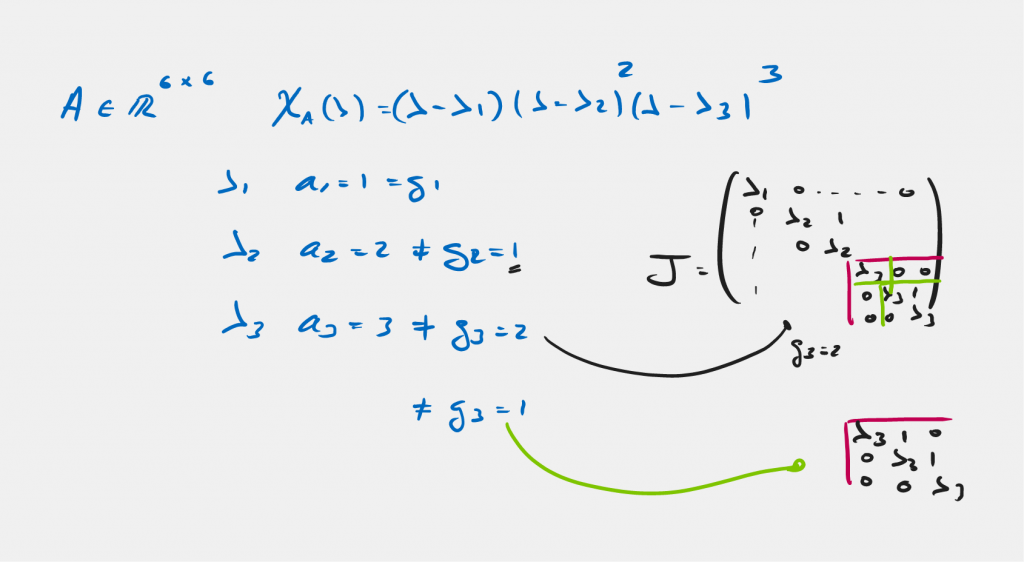 A ∈ ℝ^{6×6}   χ_A(λ) = (λ − λ_1)(λ − λ_2)^2(λ − λ_3)^3
λ_1   a_1 = 1 = g_1
λ_2   a_2 = 2 ≠ g_2 = 1
λ_3   a_3 = 3 ≠ g_3 = 2
≠ g_3 = 1
J =
λ_1 0 . . - - . 0
0 λ_2 1
0 λ_2
λ_3 0 0
0 λ_3 1
0 0 λ_3
g_3 = 2
λ_3 1 0
0 λ_3 1
0 0 λ_3